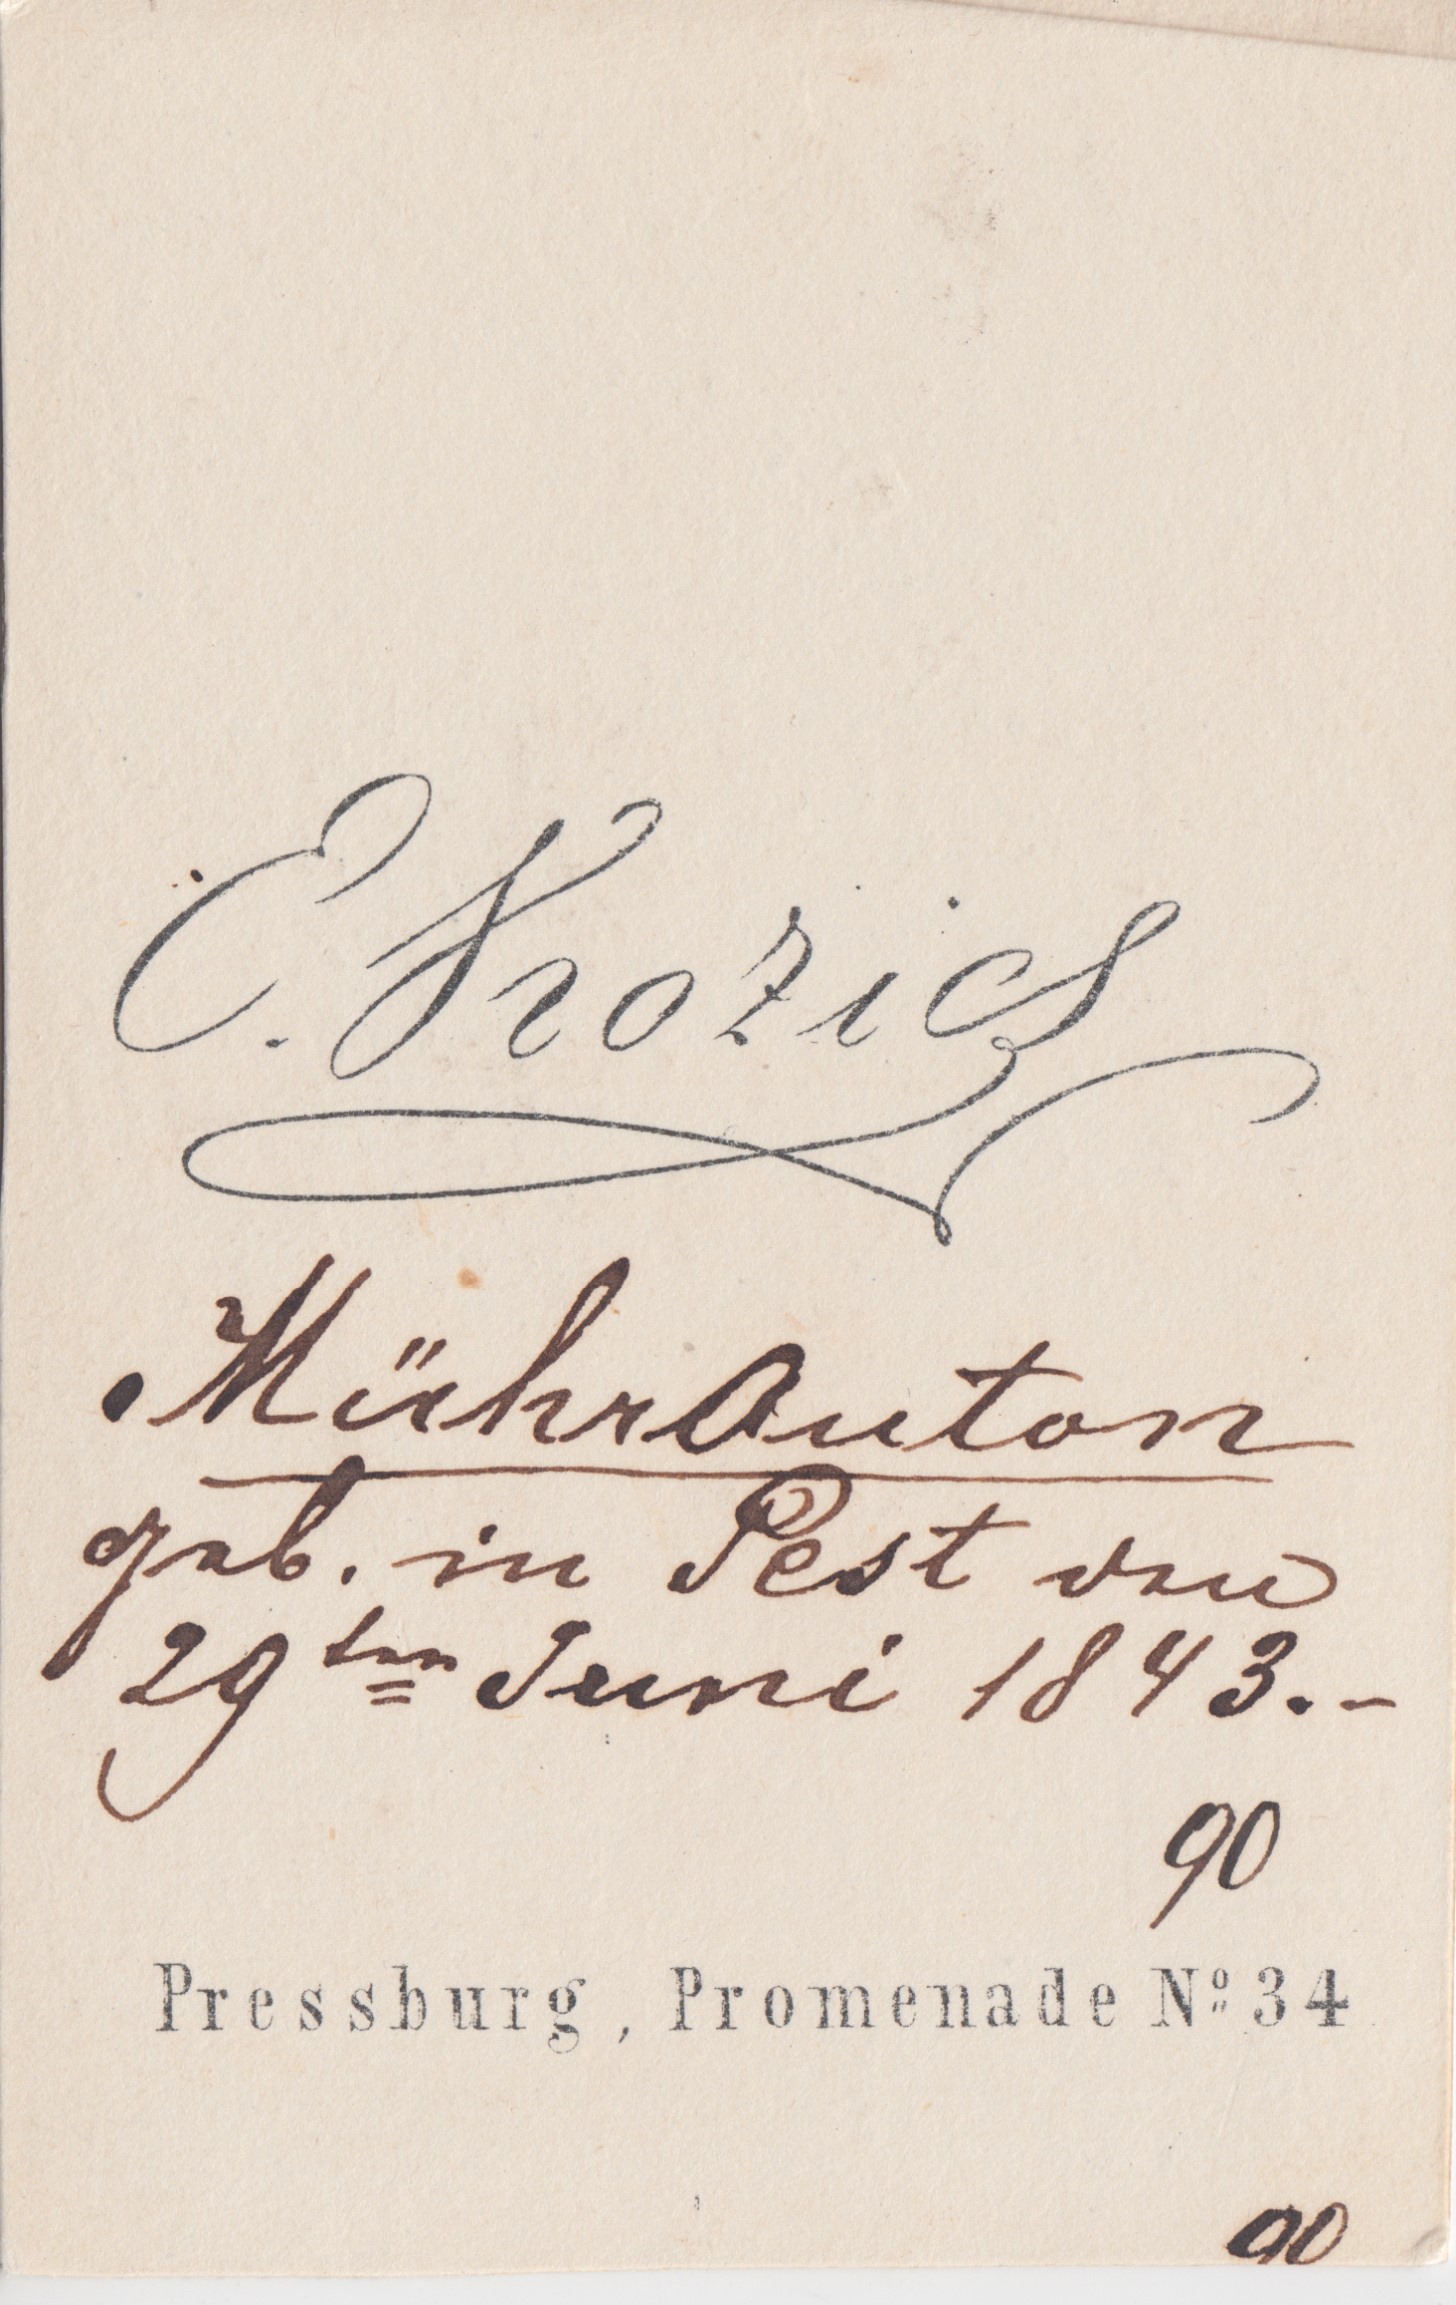 E. Kozics
Mühr Anton
geb. in Pest den
29ten Juni 1843.-
90
Pressburg, Promenade Nº 34
90